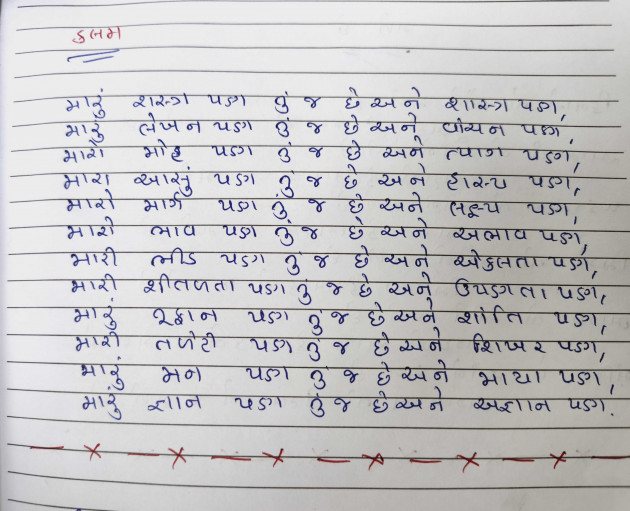 કલમ
મારું શસ્ત્ર પણ તું જ છે અને શાસ્ત્ર પણ,
મારું લેખન પણ તું જ છે અને વાંચન પણ,
મારો મોહ પણ તું જ છે અને ત્યાગ પણ,
મારા આસું પણ તું જ છે અને હાસ્ય પણ,
મારો માર્ગ પણ તું જ છે અને લક્ષ્ય પણ,
મારો ભાવ પણ તું જ છે અને અભાવ પણ,
મારી ભીડ પણ તું જ છે અને એકલતા પણ,
મારી શીતળતા પણ તું જ છે અને ઉષ્ણતા પણ,
મારું તૂફાન પણ તું જ છે અને શાંતિ પણ,
મારી તળેટી પણ તું જ છે અને શિખર પણ,
મારું મન પણ તું જ છે અને માયા પણ,
મારું જ્ઞાન પણ તું જ છે અને અજ્ઞાન પણ.